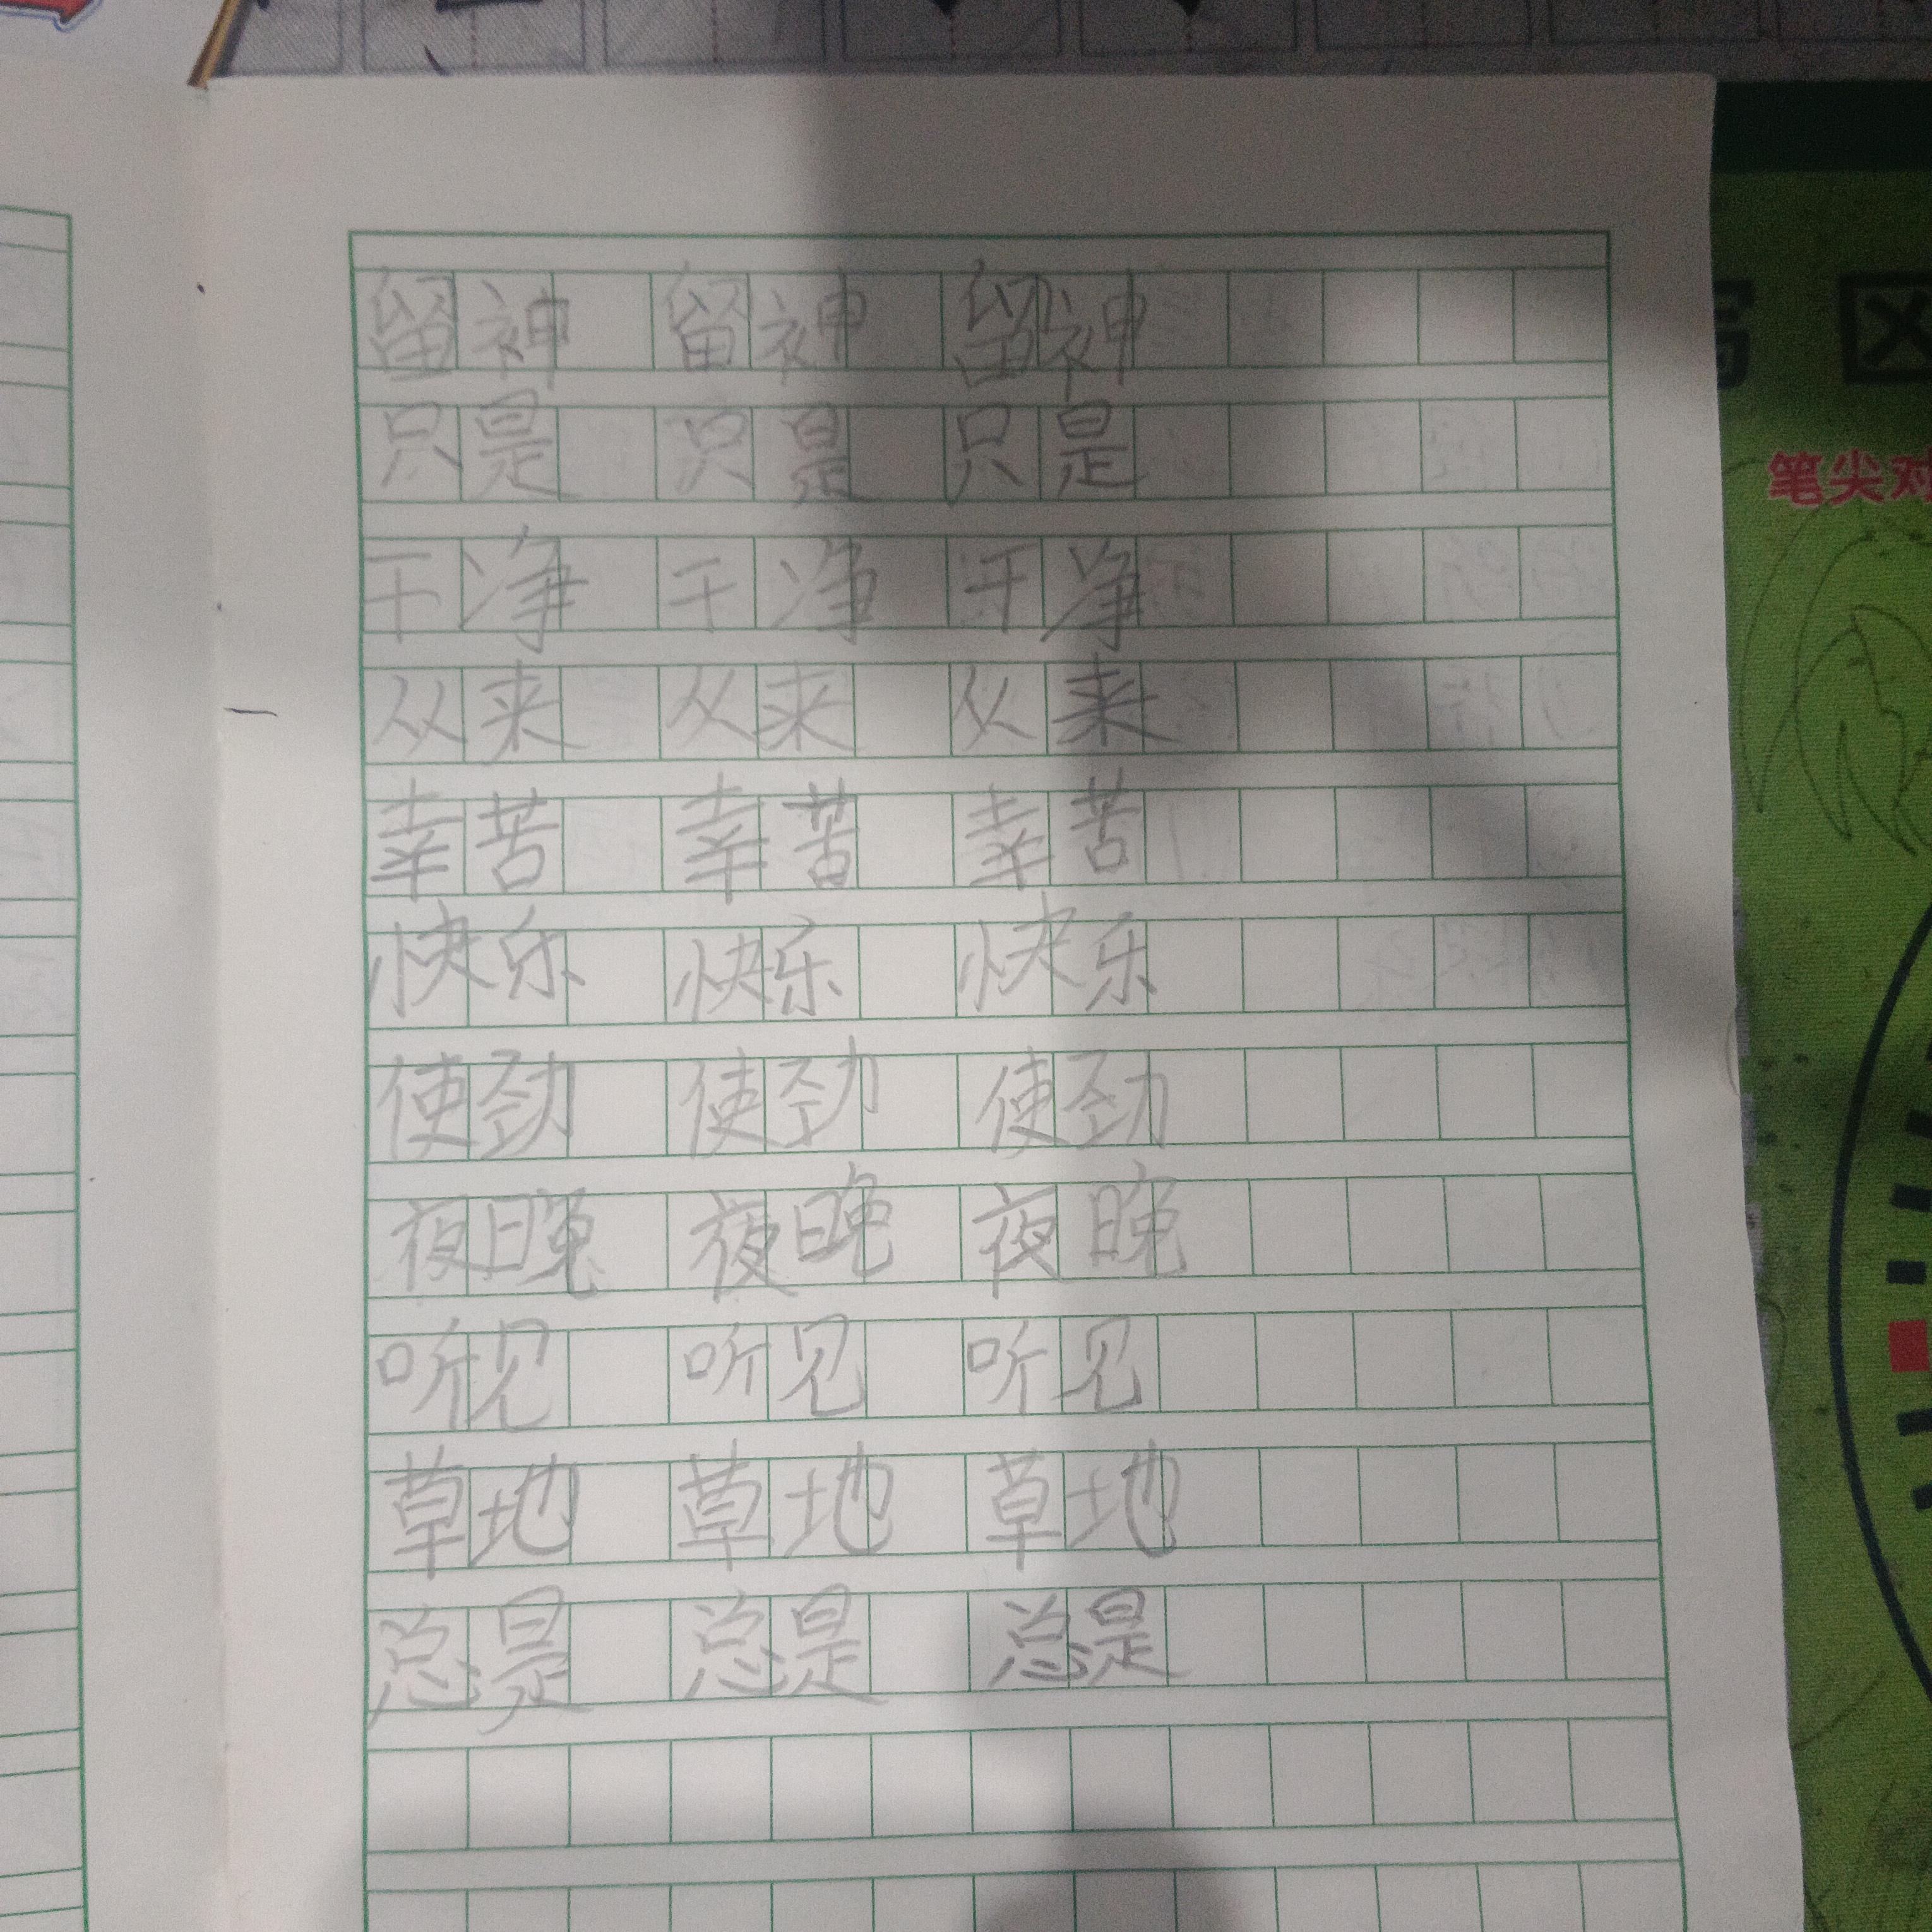 留神 留神 留神
只是 只是 只是
干净 干净 干净
从来 从来 从来
幸苦 幸苦 幸苦
快乐 快乐 快乐
使劲 使劲 使劲
夜晚 夜晚 夜晚
听见 听见 听见
草地 草地 草地
总是 总是 总是
笔尖对